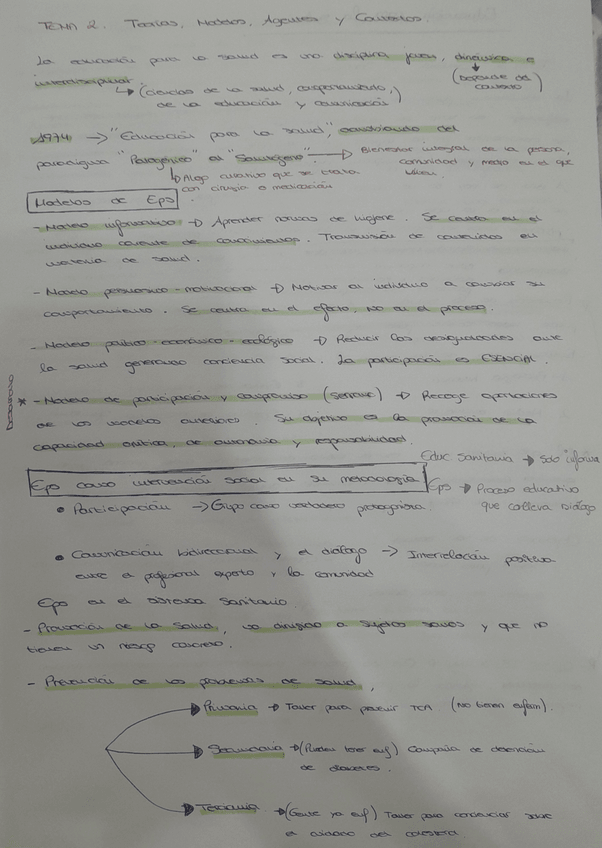 TEMA 2. Teorías, Modelos, Agentes y Contextos.
La educación para la salud es una disciplina joven, dinámica e
interdisciplinar. (Depende del contexto)
↳ (ciencias de la salud, comportamiento,
de la educación y comunicación)
1974 → "Educación para la salud", cambiando del
paradigma "Patogénico" al "Salutogénico" → Bienestar integral de la persona,
comunidad y medio en el que
viven.
↳ Algo curativo que se trata
con cirugía o medicación
Modelos de Eps
- Modelo informativo → Aprender normas de higiene. Se centra en el
individuo carente de conocimientos. Transmisión de contenidos en
materia de salud.
- Modelo persuasivo-motivacional → Motivar al individuo a cambiar su
comportamiento. Se centra en el efecto, NO en el proceso.
- Modelo político-económico-ecológico → Reducir las desigualdades ante
la salud generando conciencia social. La participación es ESENCIAL
* - Modelo de participación y compromiso ( 
) → Recoge aportaciones
de los modelos anteriores. Su objetivo es la promoción de la
capacidad crítica, de autonomía y responsabilidad.
Educ Sanitaria → Solo informa
Eps como intervención social en su metodología
Eps → Proceso educativo
que conlleva diálogo
• Participación → Grupo como verdadero protagonista.
• Comunicación bidireccional y el diálogo → Interrelación positiva
entre el profesional experto y la comunidad
Eps en el sistema sanitario.
- Promoción de la salud, va dirigido a sujetos sanos y que no
tienen un riesgo concreto.
- Prevención de los problemas de salud,
Primaria → Taller para prevenir TCA. (No tienen enferm).
Secundaria → (Pueden tener enf) Campaña de detención
de
Terciaria → (Gente ya enf) Taller para concienciar sobre
el cuidado del colesterol.